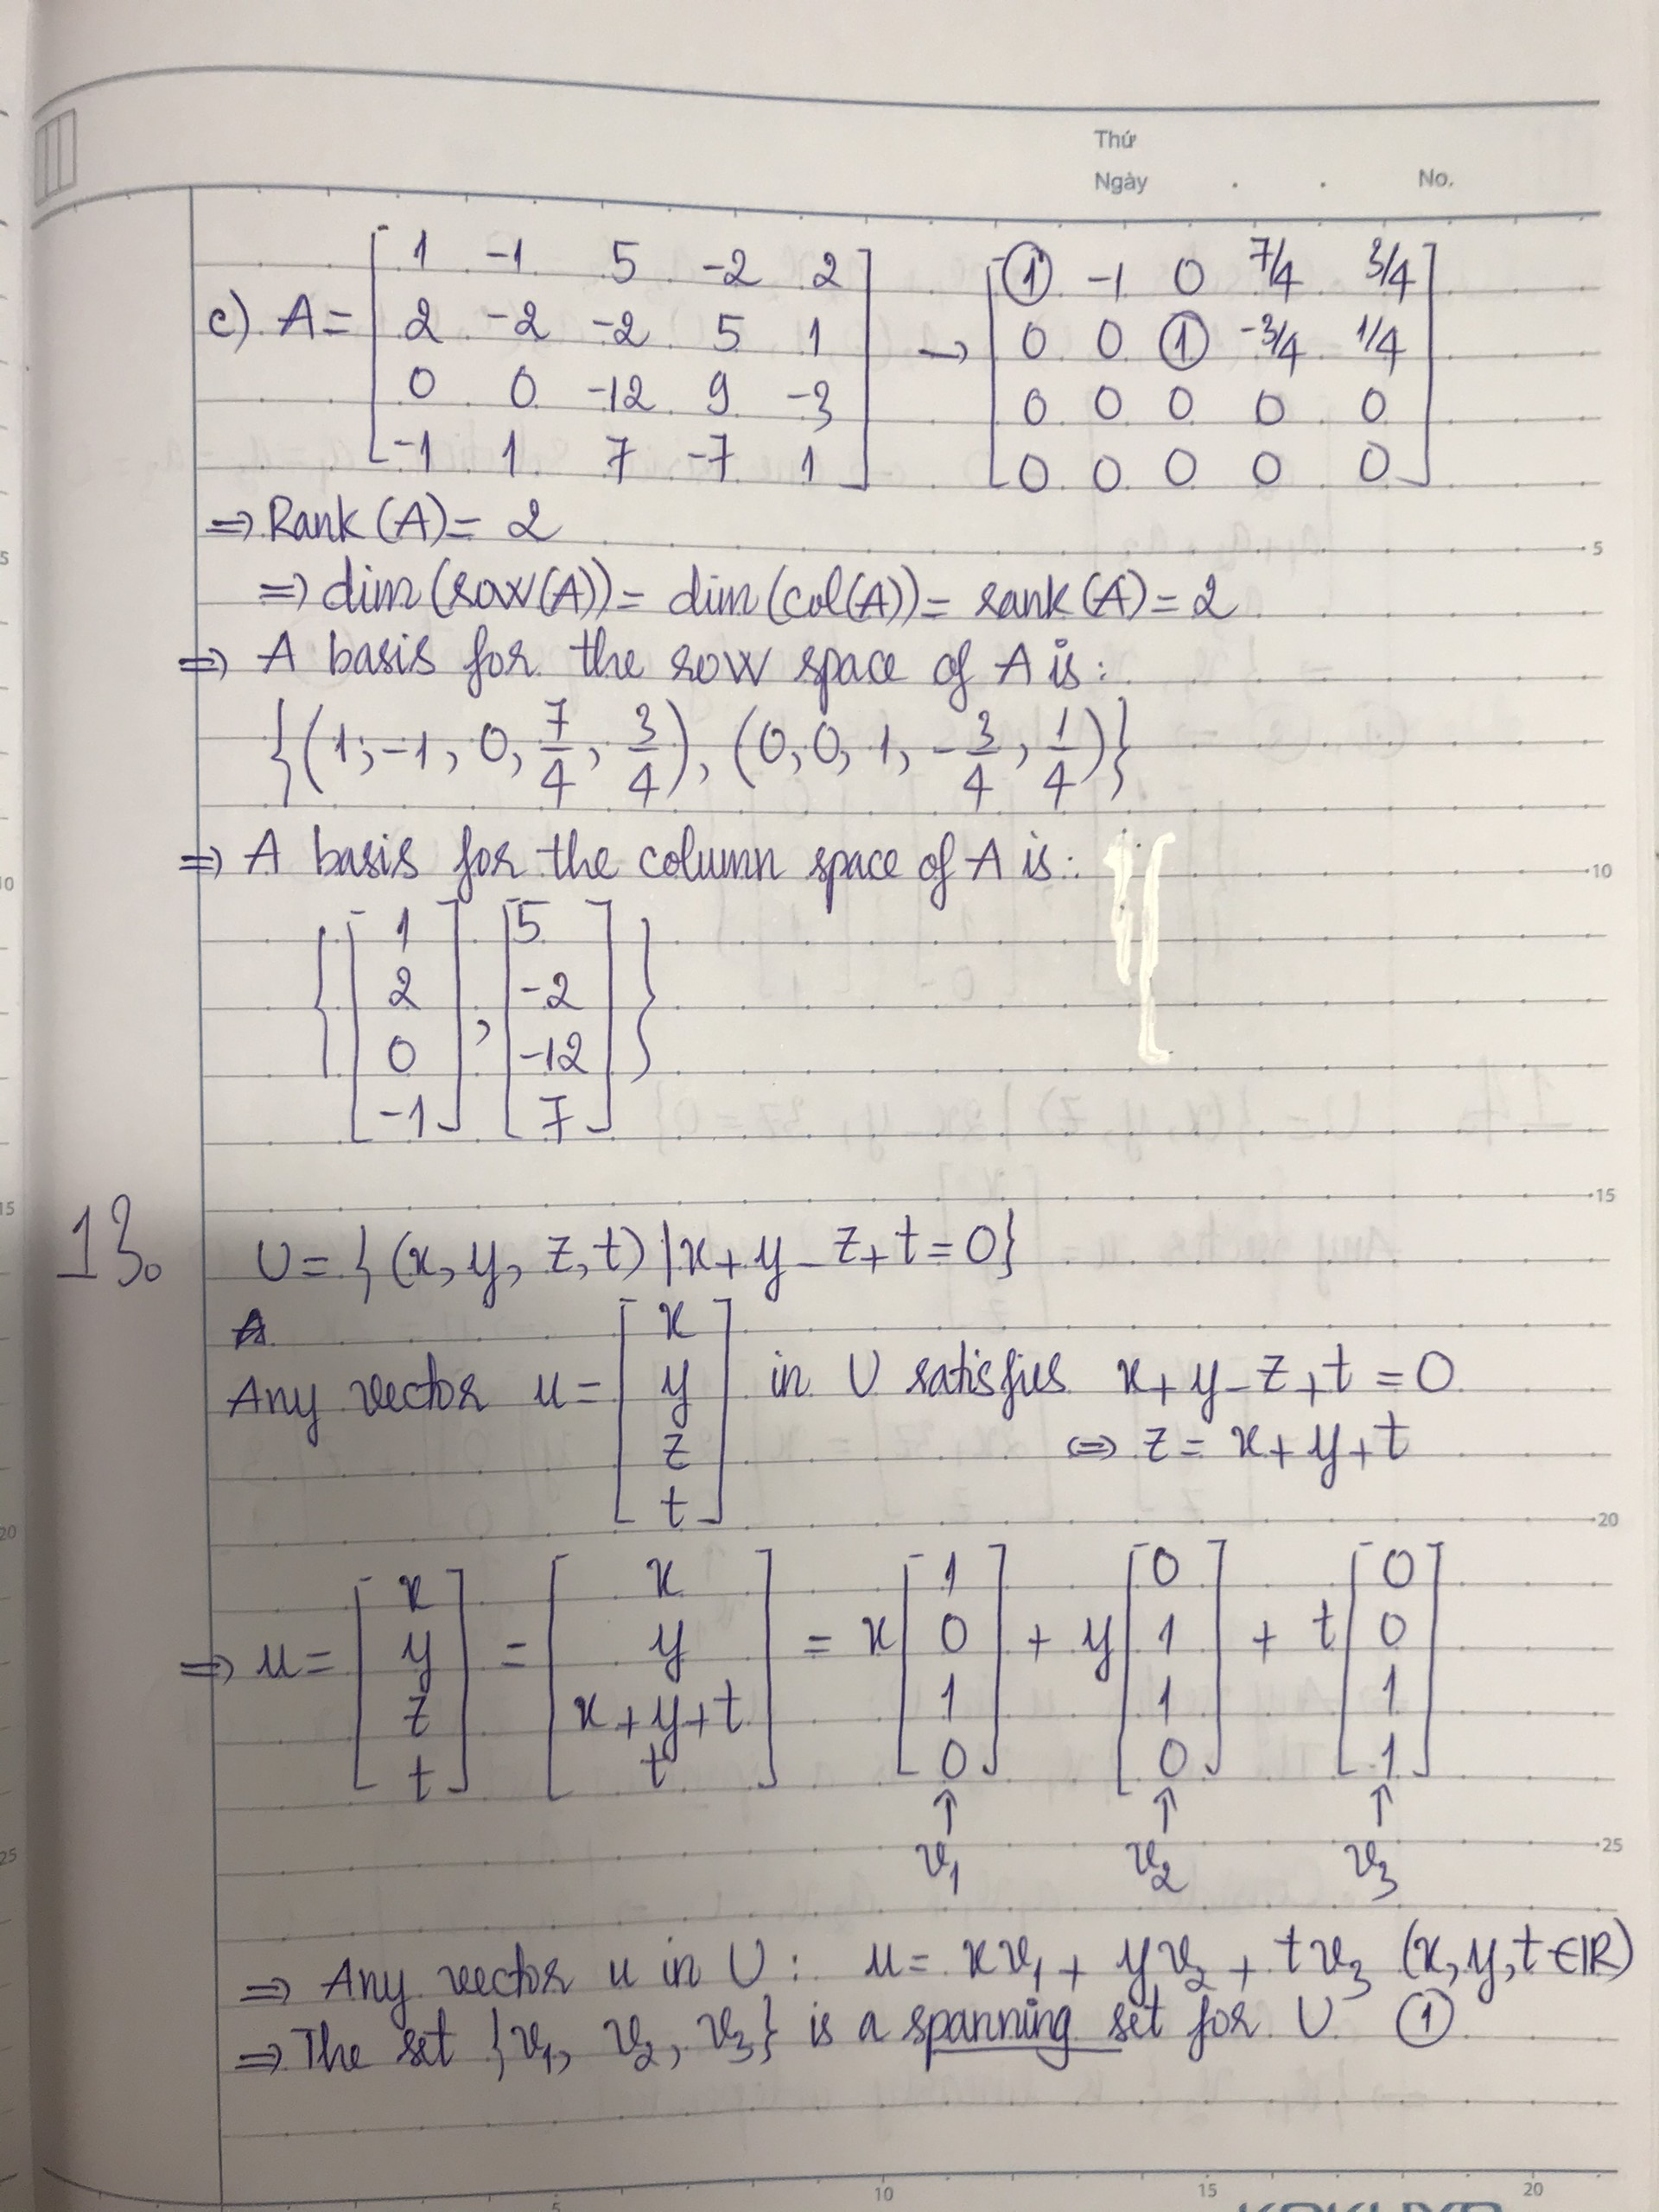 Thứ
Ngày . . No.
c) A = [1 -1 5 -2 2; 2 -2 -2 5 1; 0 0 -12 9 -3; -1 1 7 -7 1] → [① -1 0 7/4 3/4; 0 0 ① -3/4 1/4; 0 0 0 0 0; 0 0 0 0 0]
⇒ Rank(A) = 2
⇒ dim(row(A)) = dim(col(A)) = rank(A) = 2
⇒ A basis for the row space of A is:
{(1, -1, 0, 7/4, 3/4), (0, 0, 1, -3/4, 1/4)}
⇒ A basis for the column space of A is:
{[1; 2; 0; -1], [5; -2; -12; 7]}
13. U = {(x, y, z, t) | x + y - z + t = 0}
A
Any vector u = [x; y; z; t] in U satisfies x + y - z + t = 0
⇔ z = x + y + t
⇒ u = [x; y; z; t] = [x; y; x+y+t; t] = x[1; 0; 1; 0] + y[0; 1; 1; 0] + t[0; 0; 1; 1]
↑ ↑ ↑
v1 v2 v3
⇒ Any vector u in U: u = xv1 + yv2 + tv3 (x, y, t ∈ ℝ)
⇒ The set {v1, v2, v3} is a spanning set for U ①